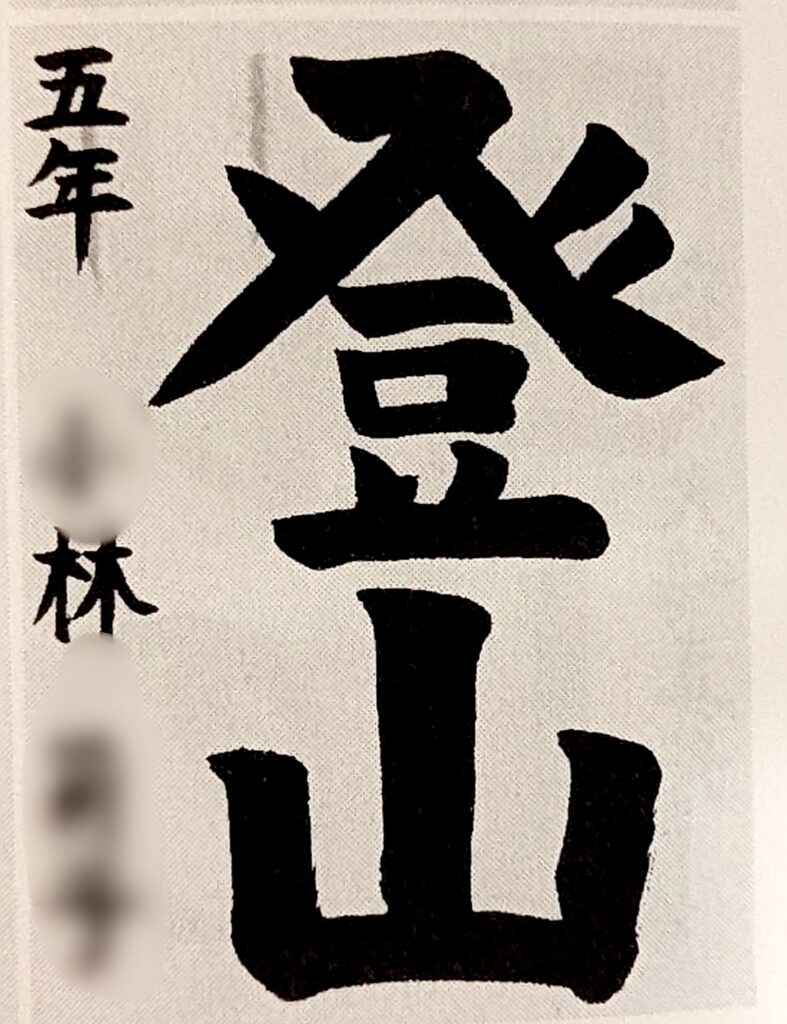 登山
五年 林